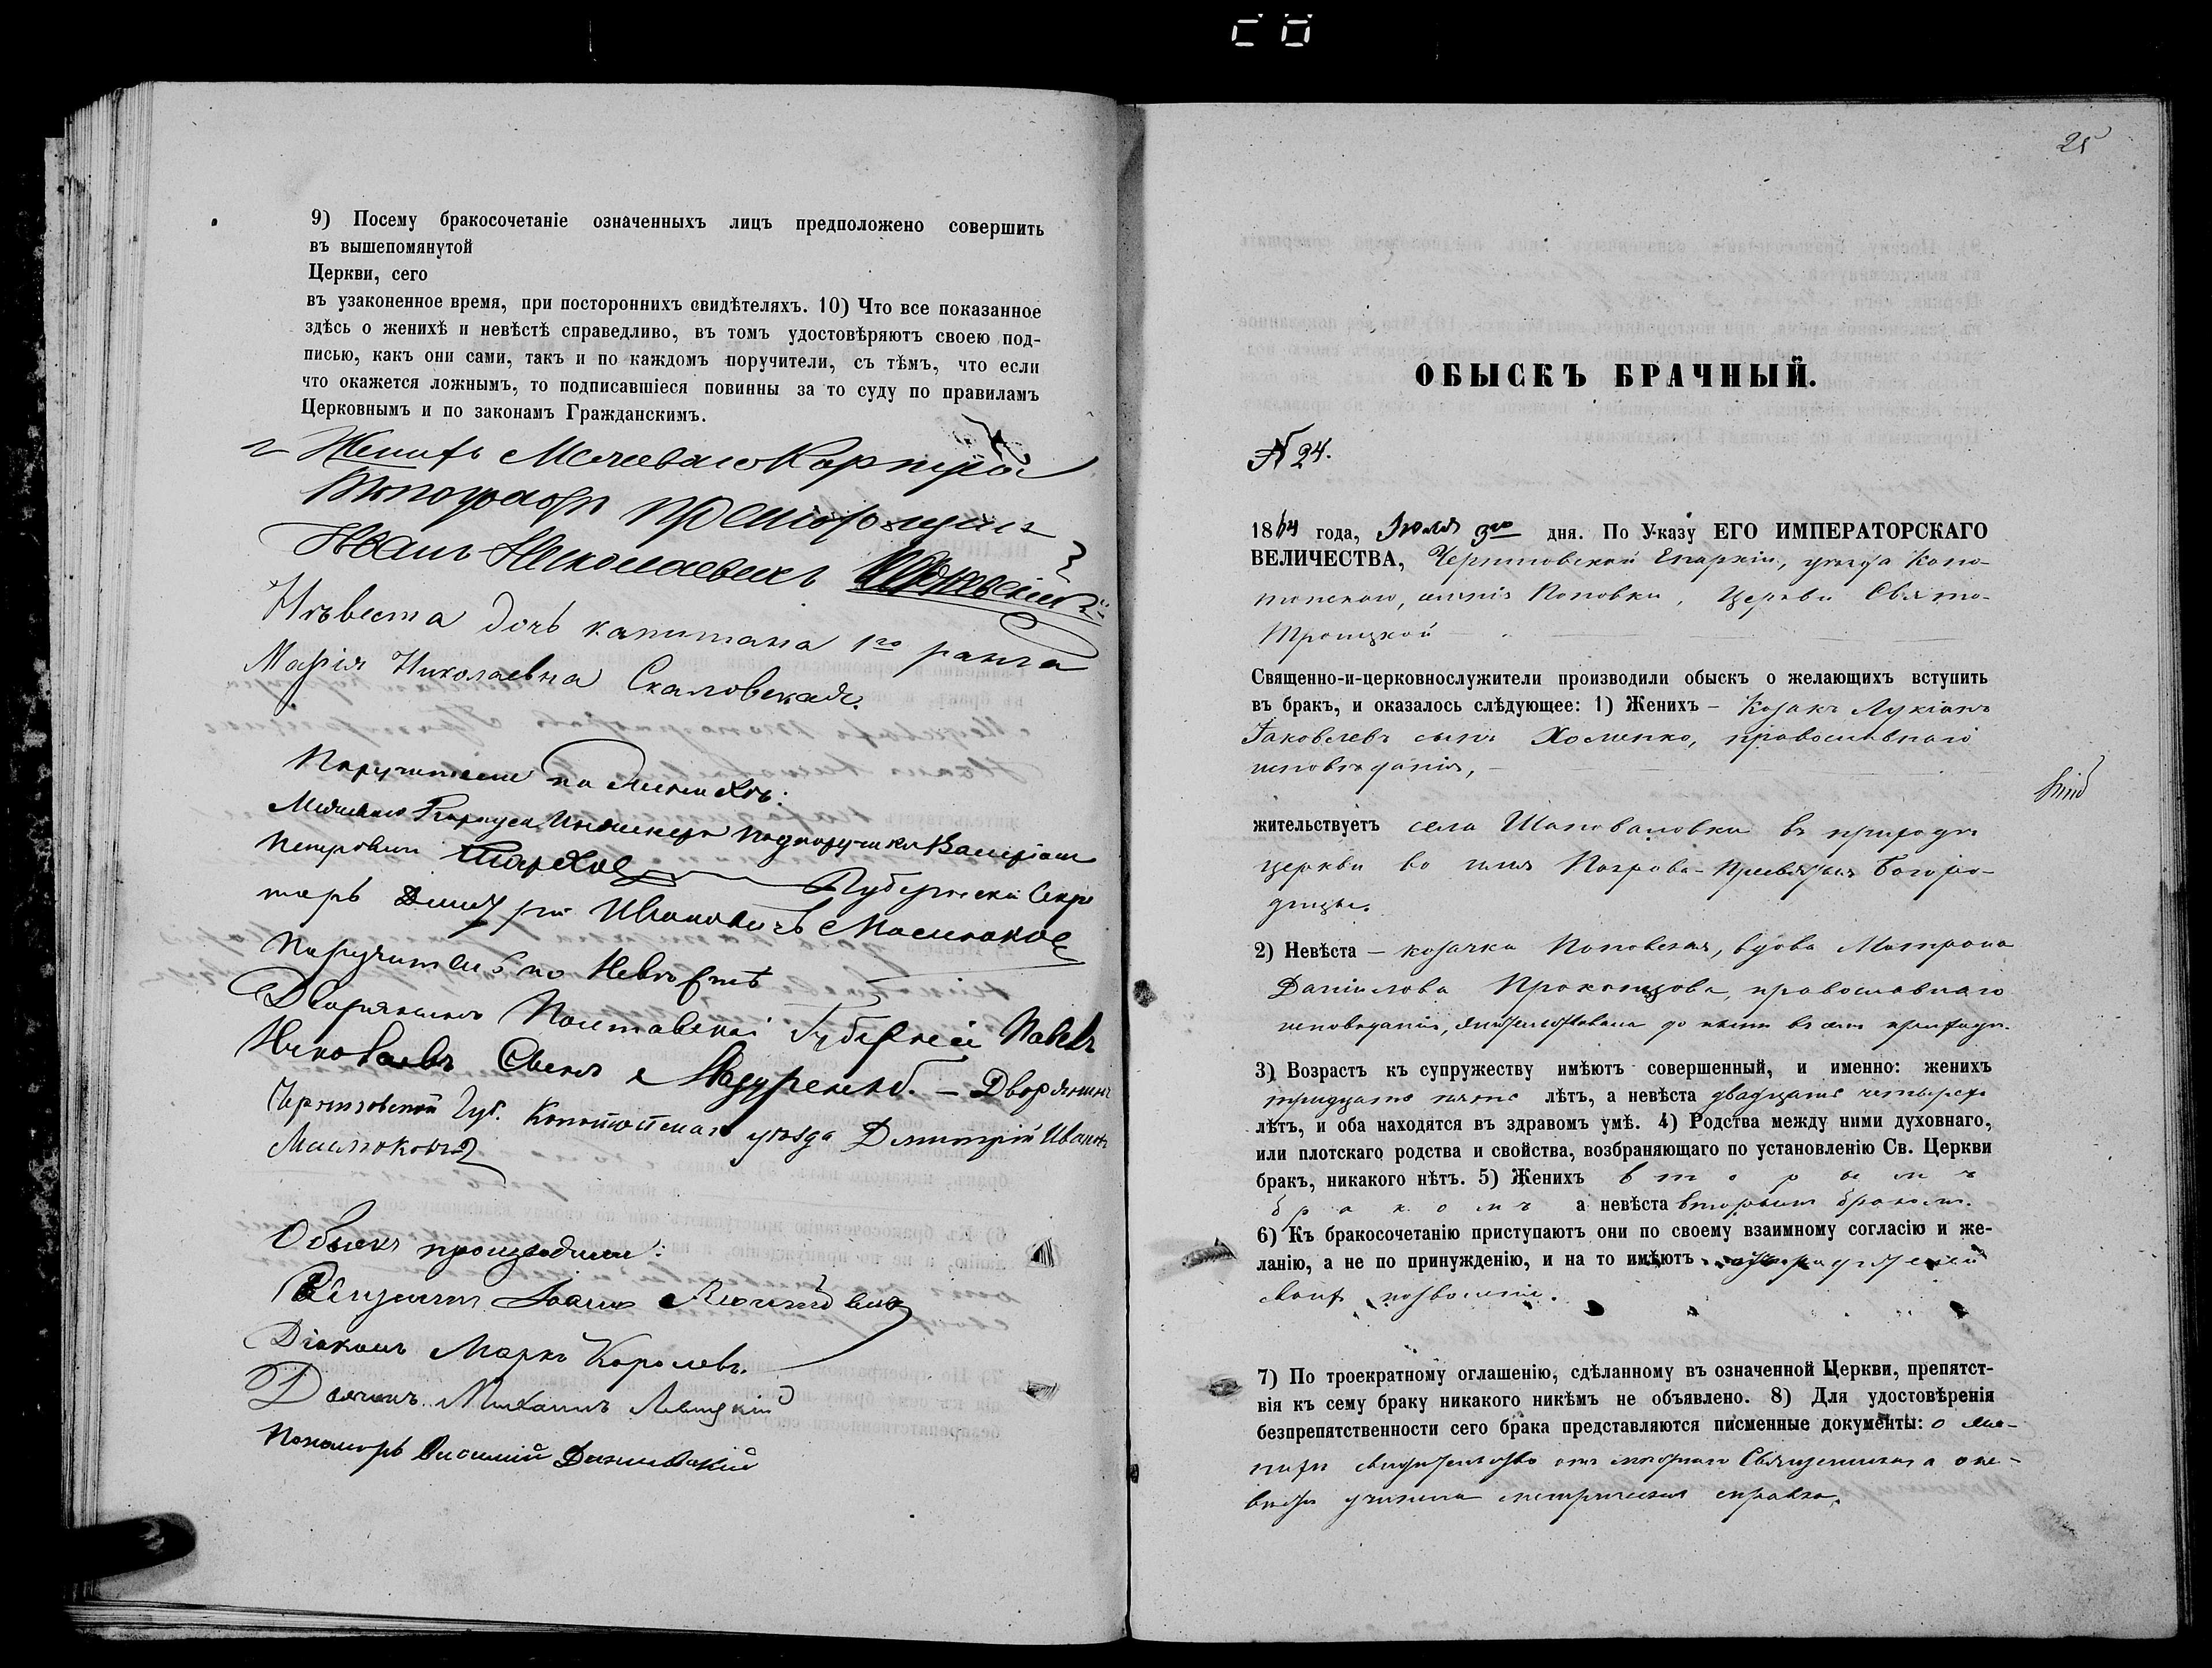 9) Посему бракосочетаніе означенныхъ лицъ предположено совершить
въ вышепомянутой
Церкви, сего
въ узаконенное время, при постороннихъ свидѣтеляхъ. 10) Что все показанное
здѣсь о женихѣ и невѣстѣ справедливо, въ томъ удостовѣряютъ своею под-
писью, какъ они сами, такъ и по каждомъ поручители, съ тѣмъ, что если
что окажется ложнымъ, то подписавшіеся повинны за то суду по правиламъ
Церковнымъ и по законамъ Гражданскимъ.
Женихъ Межеваго Корпуса
Топографъ
Иванъ Николаевичъ
Нѣвеста дочь капитана 1го ранга
Марія Николаевна Скаловская.
Поручители по Женихѣ:
Межеваго Корпуса Инженеръ Подпоручикъ Валеріанъ
Петровичъ Губернскій Секре
тарь Дмитрій Ивановичъ Маслоковец
Поручители по Невѣстѣ
Дворянинъ Полтавской Губерніи Павелъ
Николаевъ Сынъ Мазуренко. — Дворянинъ
Черниговской Губ. Конотопскаго уѣзда Дмитрій Иванов
Маслоковец
Обыскъ производили:
Священникъ Іоаннъ
Діаконъ Маркъ Королевъ.
Дьячокъ Михаилъ Левицкій
Пономарь Василій
25
ОБЫСКЪ БРАЧНЫЙ.
№ 24.
1864 года, Іюля 3го дня. По Указу ЕГО ИМПЕРАТОРСКАГО
ВЕЛИЧЕСТВА, Черниговской Епархіи, уѣзда Коно-
топскаго, селенія Поповки, Церкви Свято-
Троицкой
Священно-и-церковнослужители производили обыскъ о желающихъ вступить
въ бракъ, и оказалось слѣдующее: 1) Женихъ — Козакъ Лукіанъ
Іаковлевъ сынъ Хоменко, православнаго
исповѣданія,
жительствуетъ села Шаповаловки въ приходѣ
церкви во имя Покрова Пресвятыя Богоро-
дицы.
2) Невѣста — козачка Поповская, вдова Матрона
Даніилова Прокопцова, православнаго
исповѣданія, жительствовала до нынѣ въ семъ приходѣ.
3) Возрастъ къ супружеству имѣютъ совершенный, и именно: женихъ
тридцать пять лѣтъ, а невѣста двадцать четыре
лѣтъ, и оба находятся въ здравомъ умѣ. 4) Родства между ними духовнаго,
или плотскаго родства и свойства, возбраняющаго по установленію Св. Церкви
бракъ, никакого нѣтъ. 5) Женихъ вторымъ
бракомъ а невѣста вторымъ бракомъ.
6) Къ бракосочетанію приступаютъ они по своему взаимному согласію и же-
ланію, а не по принужденію, и на то имѣютъ родителей
своихъ позволеніе.
7) По троекратному оглашенію, сдѣланному въ означенной Церкви, препятст-
вія къ сему браку никакого никѣмъ не объявлено. 8) Для удостовѣренія
безпрепятственности сего брака представляются писменные документы: о же-
нихѣ свидѣтельство отъ мѣстнаго Священника а о не-
вѣстѣ учинена метрическая справка.